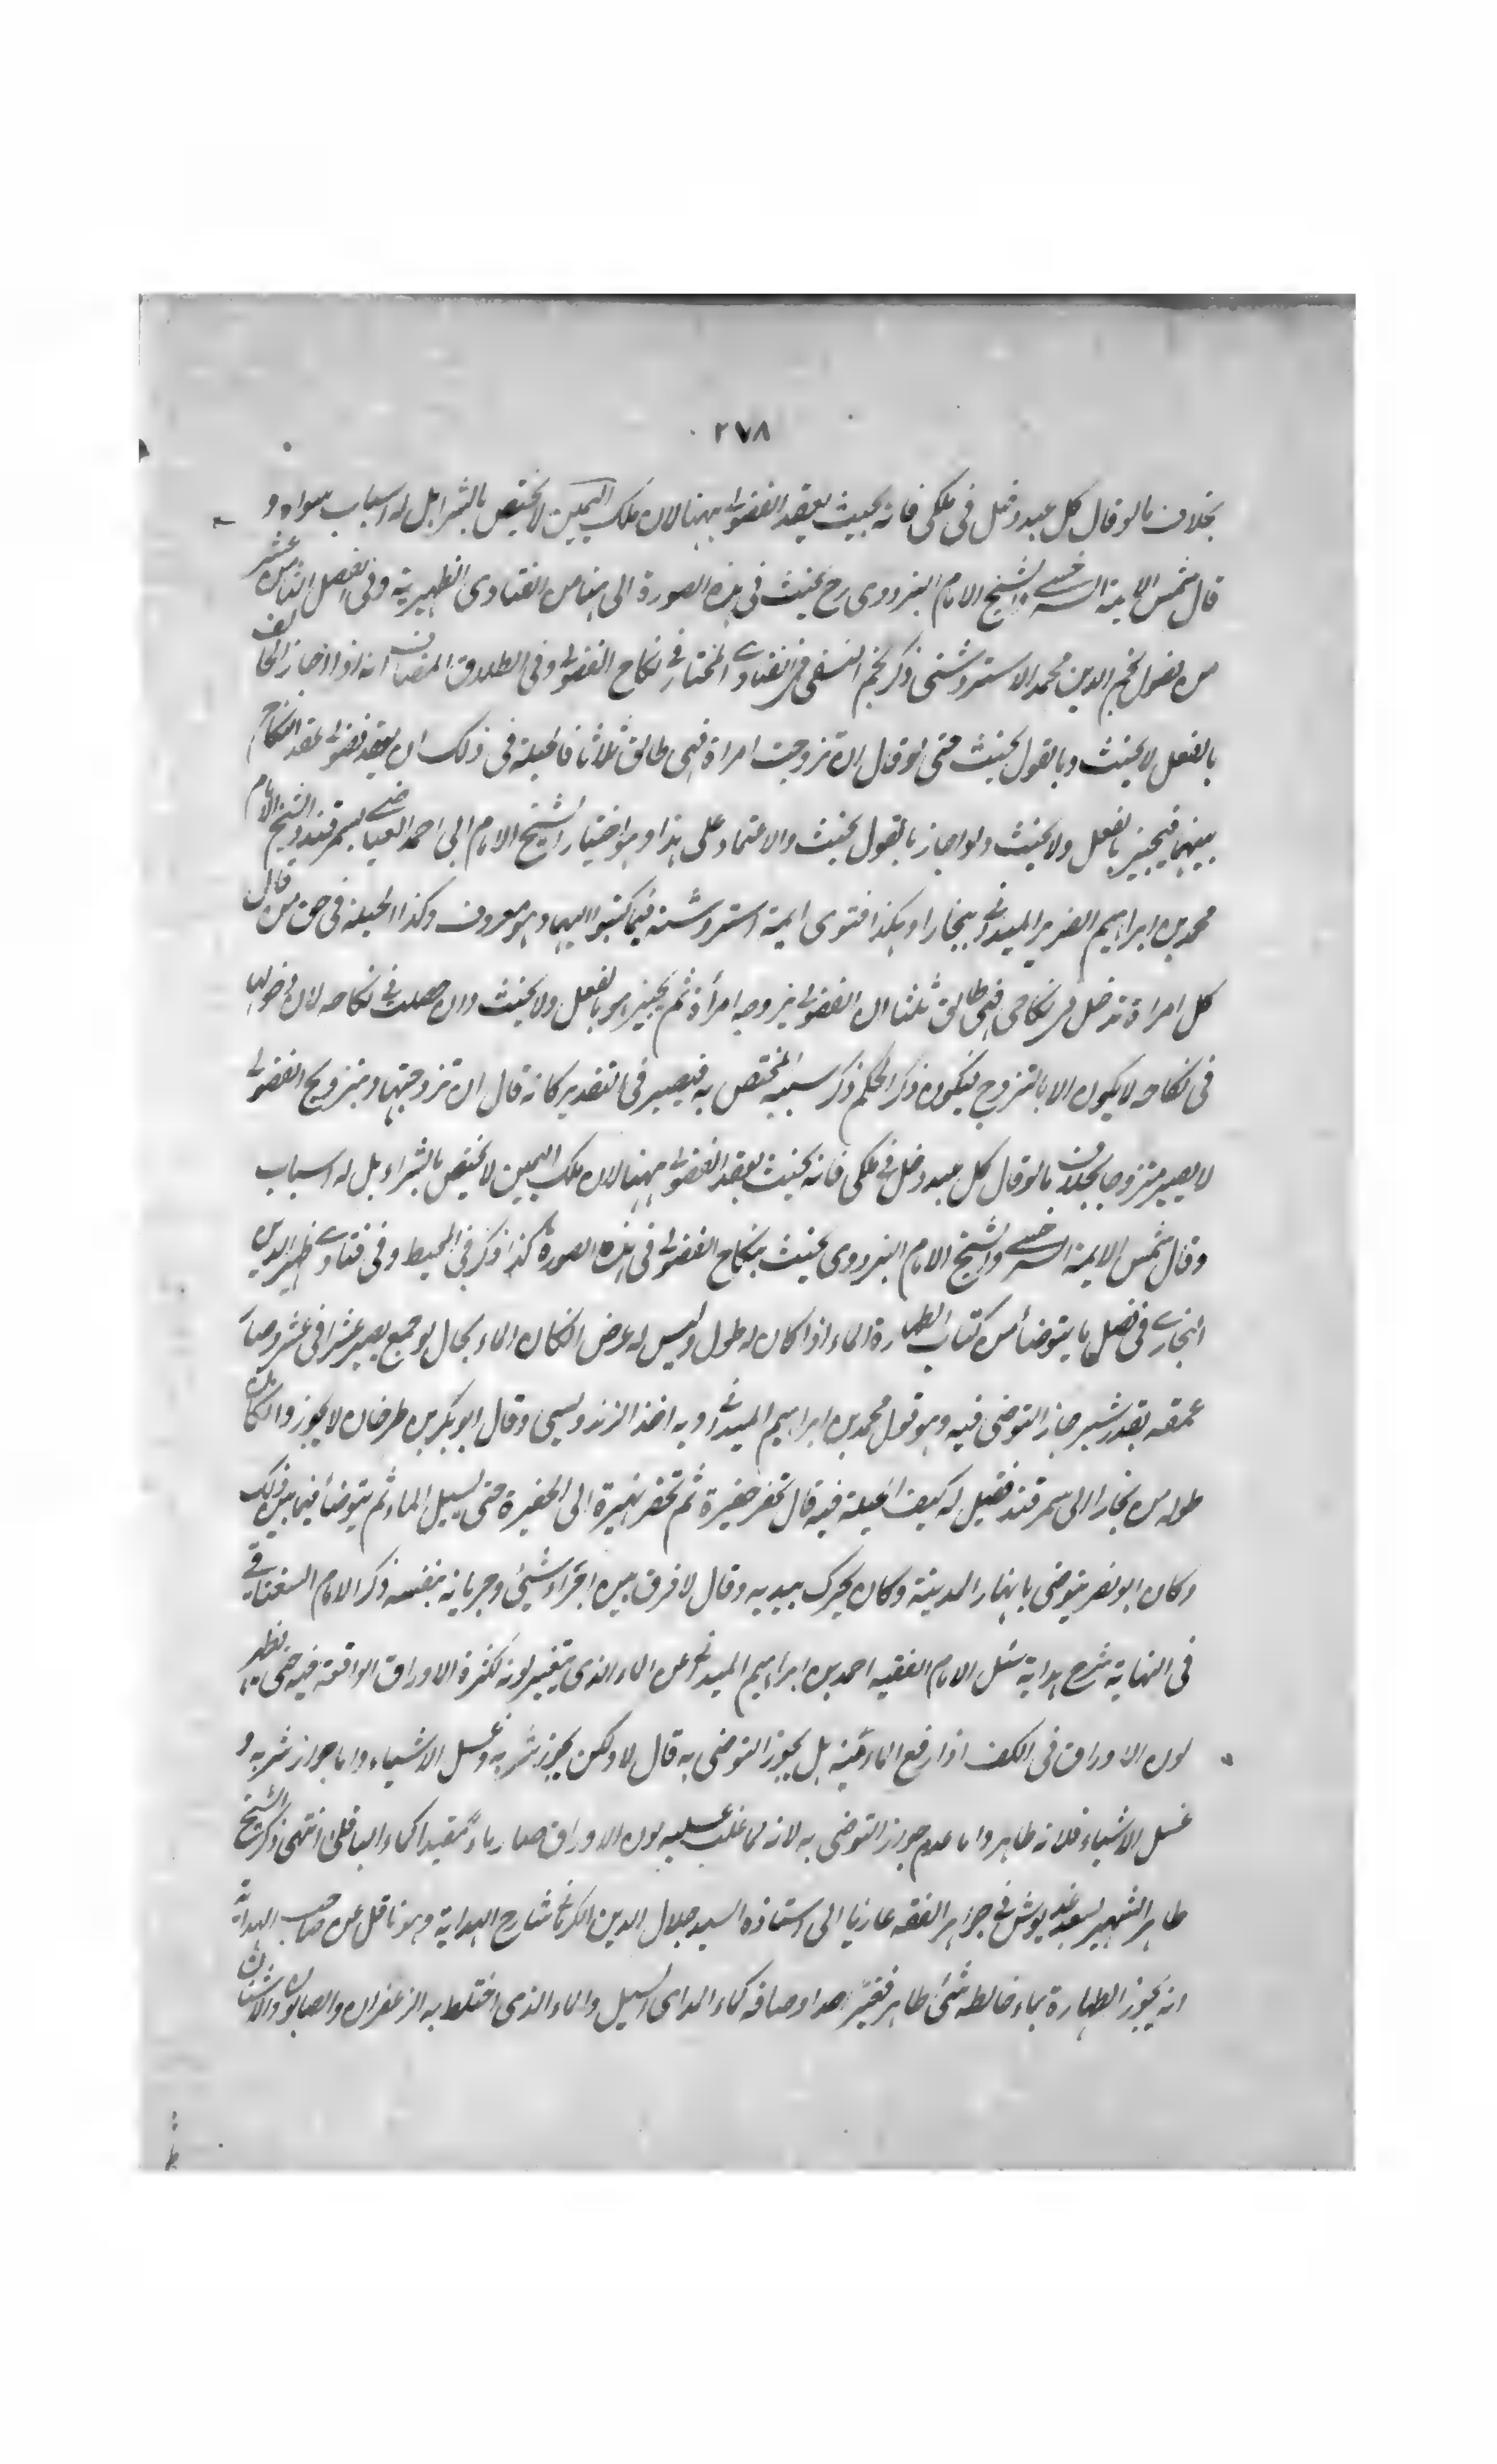 ٢٧٨
بخلاف ما لو قال كل عبد دخل فى ملكى فانه يحنث بعقد الفضولى ههنا لان ملك اليمين لا يختص بالشرا بل له اسباب سواه و
قال شمس الايمة السرخسى والشيخ الامام البزدوى رح يحنث فى هذه الصورة الى هنا من الفتاوى الظهيرية وفى الفصل الثامن عشر
من فصول نجم الدين محمد الاستروشنى ذكر نجم النسفى فى الفتاوى المختار فى نكاح الفضولى وفى الطلاق المضاف انه اذا اجاز الحالف
بالفعل لا يحنث وبالقول يحنث حتى لو قال ان تزوجت امراة فهى طالق ثلاثا فالحيلة فى ذلك ان يعقد فضولى عقد النكاح
بينهما فيجيز بالفعل ولا يحنث ولو اجاز بالقول يحنث والاعتماد على هذا وهو اختيار الشيخ الامام ابى احمد العياضى بسمرقند والشيخ الامام
محمد بن ابراهيم الضرير الميدانى ببخارا وهكذا فتوى ايمة استروشنه فيما كتبوا اليهما وهو معروف وكذا الحيلة فى حق من قال
كل امراة تدخل فى نكاحى فهى طالق ثلثا ان الفضولى يزوجه امرأة ثم يجيز هو بالفعل ولا يحنث وان دخلت فى نكاحه لان دخولها
فى نكاحه لا يكون الا بالتزوج فيكون ذكر الحكم ذكر سببه المختص به فيصير فى التقدير كانه قال ان تزوجتها وبتزويج الفضولى
لا يصير متزوجا بخلاف ما لو قال كل عبد دخل فى ملكى فانه يحنث بعقد الفضولى ههنا لان ملك اليمين لا يختص بالشراء بل له اسباب
وقال شمس الايمة السرخسى والشيخ الامام البزدوى يحنث بنكاح الفضولى فى هذه الصورة كذا ذكر فى المحيط وفى فتاوى ظهير الدين
البخارى فى فصل ما يتوضأ من كتاب الطهارة الماء اذا كان له طول وليس له عرض ان كان الماء بحال لو جمع يصير عشرا فى عشر وصار
عمقه بقدر شبر جاز التوضى فيه وهو قول محمد بن ابراهيم الميدانى وبه اخذ الزندويسى وقال ابو بكر بن طرخان لا يجوز وان كان
طوله من بخارا الى سمرقند فقيل له كيف الحيلة فيه قال تحفر حفيرة ثم تحفر نهيرة الى الحفيرة حتى يسيل الماء ثم يتوضأ فيما بين ذلك
وكان ابو نصر يتوضى بانهار المدينة وكان يحرك بيديه وقال لا فرق بين اجراء شيئ وجريانه بنفسه ذكر الامام السغناقى
فى النهاية شرح هداية سئل الامام الفقيه احمد بن ابراهيم الميدانى عن الماء الذى يتغير لونه لكثرة الاوراق الواقعة فيه حتى يظهر
لون الاوراق فى الكف اذا رفع الماء منه هل يجوز التوضى به قال لا ولكن يجوز شربه وغسل الاشياء واما جواز شربه و
غسل الاشياء فلانه طاهر واما عدم جواز التوضى به لانه لما غلب عليه لون الاوراق صار ماء مقيدا كماء الباقلى انتهى ذكر الشيخ
طاهر الشهير بسعد غديوش فى جواهر الفقه عازيا الى استاذه السيد جلال الدين الكرلانى شارح الهداية وهو ناقل عن صاحب الهداية
انه يجوز الطهارة بماء خالطه شئ طاهر فغير احد اوصافه كماء المد اى السيل والماء الذى اختلط به الزعفران والصابون والاشنان